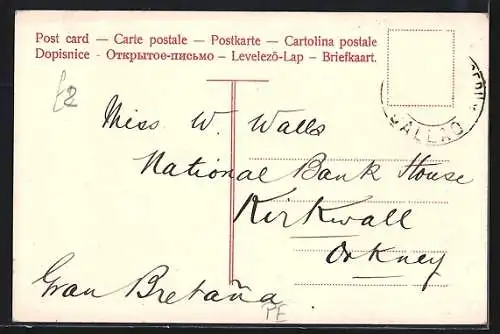 Post card — Carte postale — Postkarte — Cartolina postale
Dopisnice - Открытое-письмо – Levelező-Lap – Briefkaart.
£2
CALLAO
Miss W. Walls
National Bank House
Kirkwall
Orkney
Gran Bretaña
PE